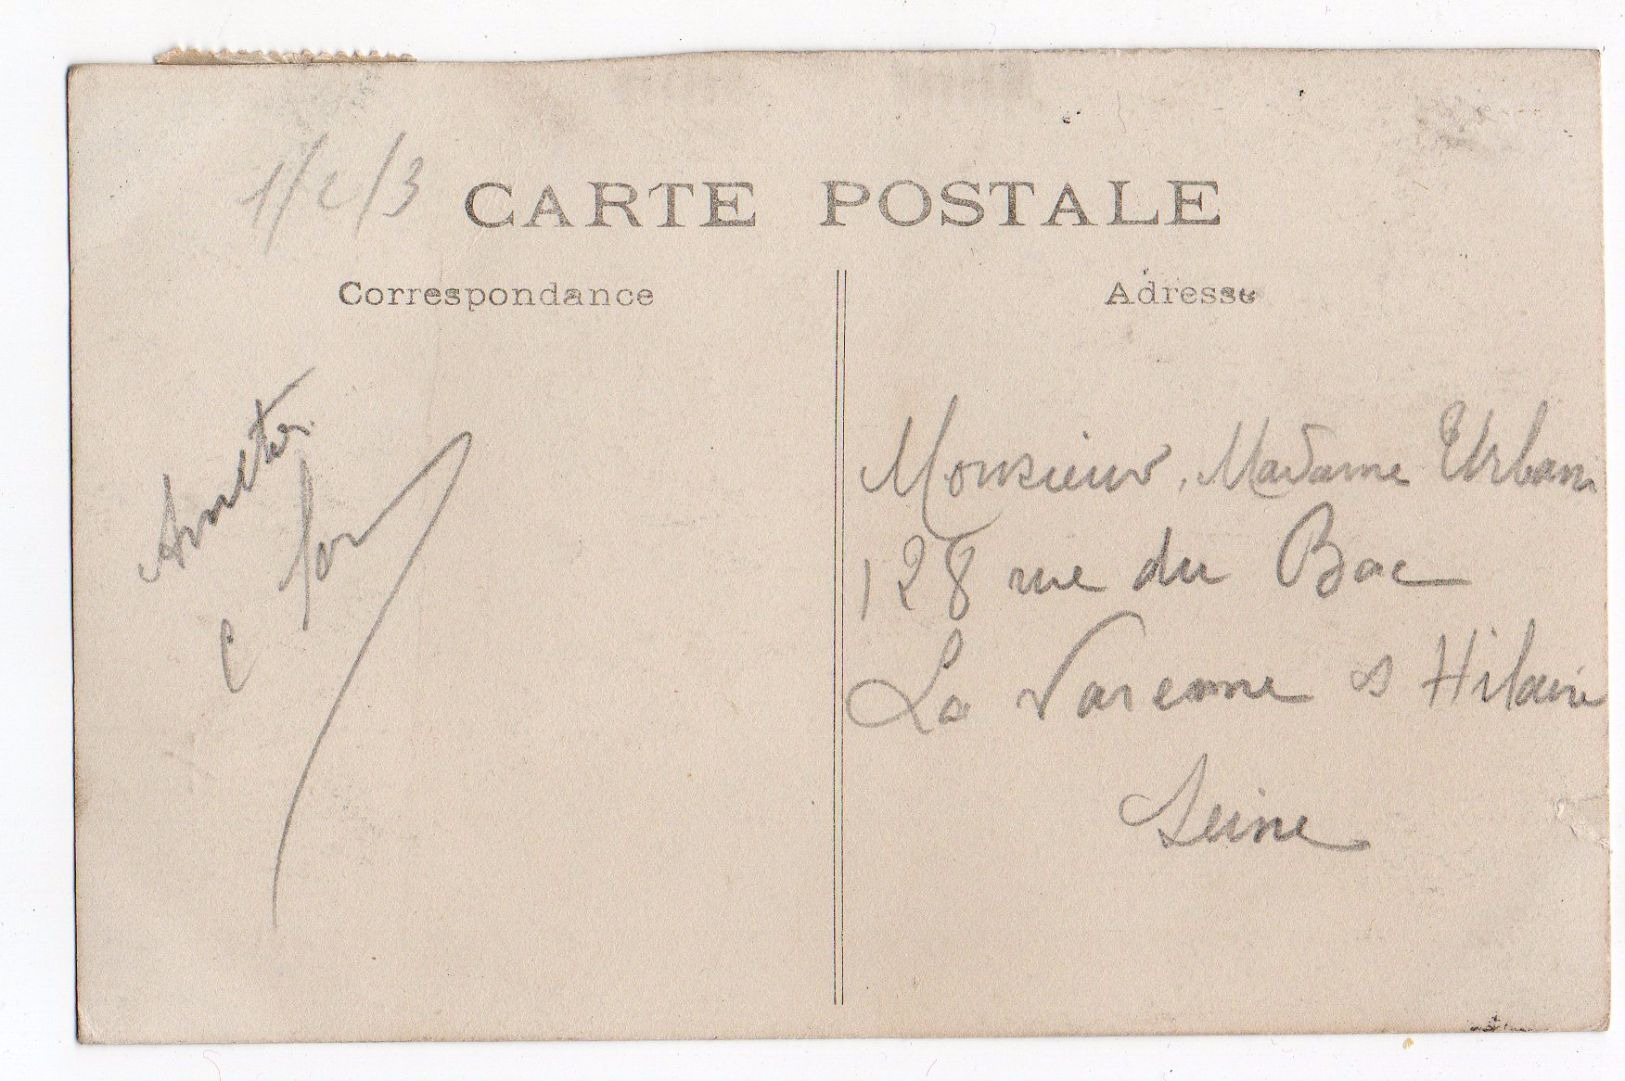 1/2/3
CARTE POSTALE
Correspondance
Adresse
Amitiés
Monsieur, Madame Urbain
128 rue du Bac
La Varenne S Hilaire
Seine